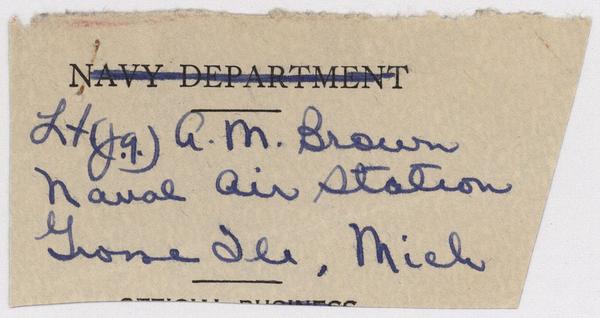 NAVY DEPARTMENT
Lt(j.g.) A. M. Brown
Naval Air Station
Grosse Ile, Mich
OFFICIAL BUSINESS